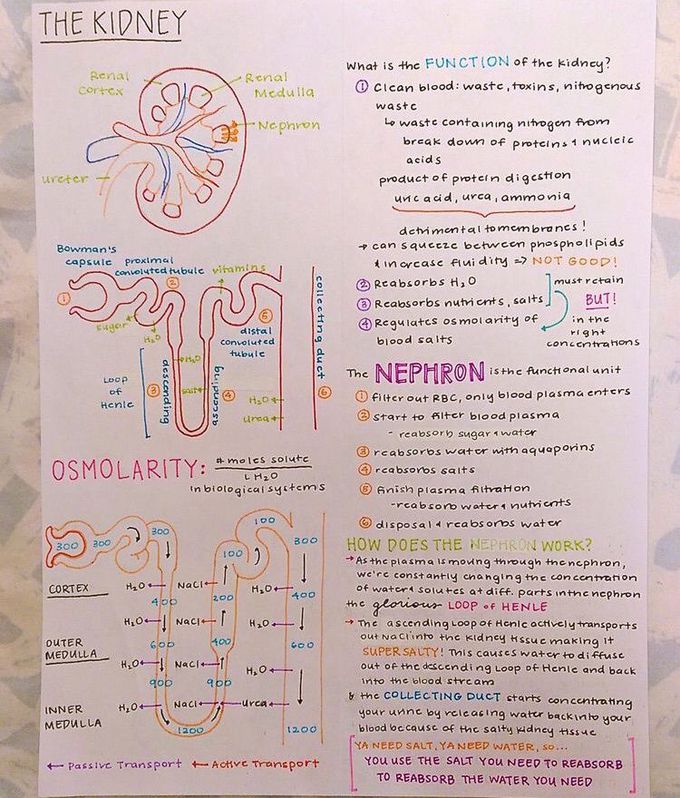 THE KIDNEY
Renal
Cortex
Renal
Medulla
Nephron
ureter
What is the FUNCTION of the kidney?
① Clean blood: waste, toxins, nitrogenous
waste
↳ waste containing nitrogen from
break down of proteins & nucleic
acids
product of protein digestion
uric acid, urea, ammonia
detrimental to membranes!
→ can squeeze between phospholipids
& increase fluidity => NOT GOOD!
② Reabsorbs H₂O
③ Reabsorbs nutrients, salts
④ Regulates osmolarity of
blood salts
must retain
BUT!
in the
right
concentrations
Bowman's
capsule
proximal
convoluted tubule
vitamins
①
②
sugar
H₂O
⑤
distal
convoluted
tubule
collecting duct
Loop
of
Henle
③
descending
H₂O
salt
ascending
④
H₂O
urea
⑥
The NEPHRON is the functional unit
① filter out RBC, only blood plasma enters
② start to filter blood plasma
- reabsorb sugar & water
③ reabsorbs water with aquaporins
④ reabsorbs salts
⑤ finish plasma filtration
- reabsorb water & nutrients
⑥ disposal & reabsorbs water
OSMOLARITY: # moles solute
L H₂O
in biological systems
300 300 300 100 300
100
CORTEX
H₂O NaCl H₂O
400 200 400
H₂O NaCl H₂O
OUTER
MEDULLA
600 400 600
H₂O NaCl H₂O
900 900
INNER
MEDULLA
H₂O NaCl Urea
1200 1200
← Passive Transport ← Active Transport
HOW DOES THE NEPHRON WORK?
→ As the plasma is moving through the nephron,
we're constantly changing the concentration
of water & solutes at diff. parts in the nephron
the glorious LOOP of HENLE
→ The ascending Loop of Henle actively transports
out NaCl into the kidney tissue making it
SUPER SALTY! This causes water to diffuse
out of the descending Loop of Henle and back
into the blood stream
& the COLLECTING DUCT starts concentrating
your urine by releasing water back into your
blood because of the salty kidney tissue
YA NEED SALT, YA NEED WATER, SO...
YOU USE THE SALT YOU NEED TO REABSORB
TO REABSORB THE WATER YOU NEED